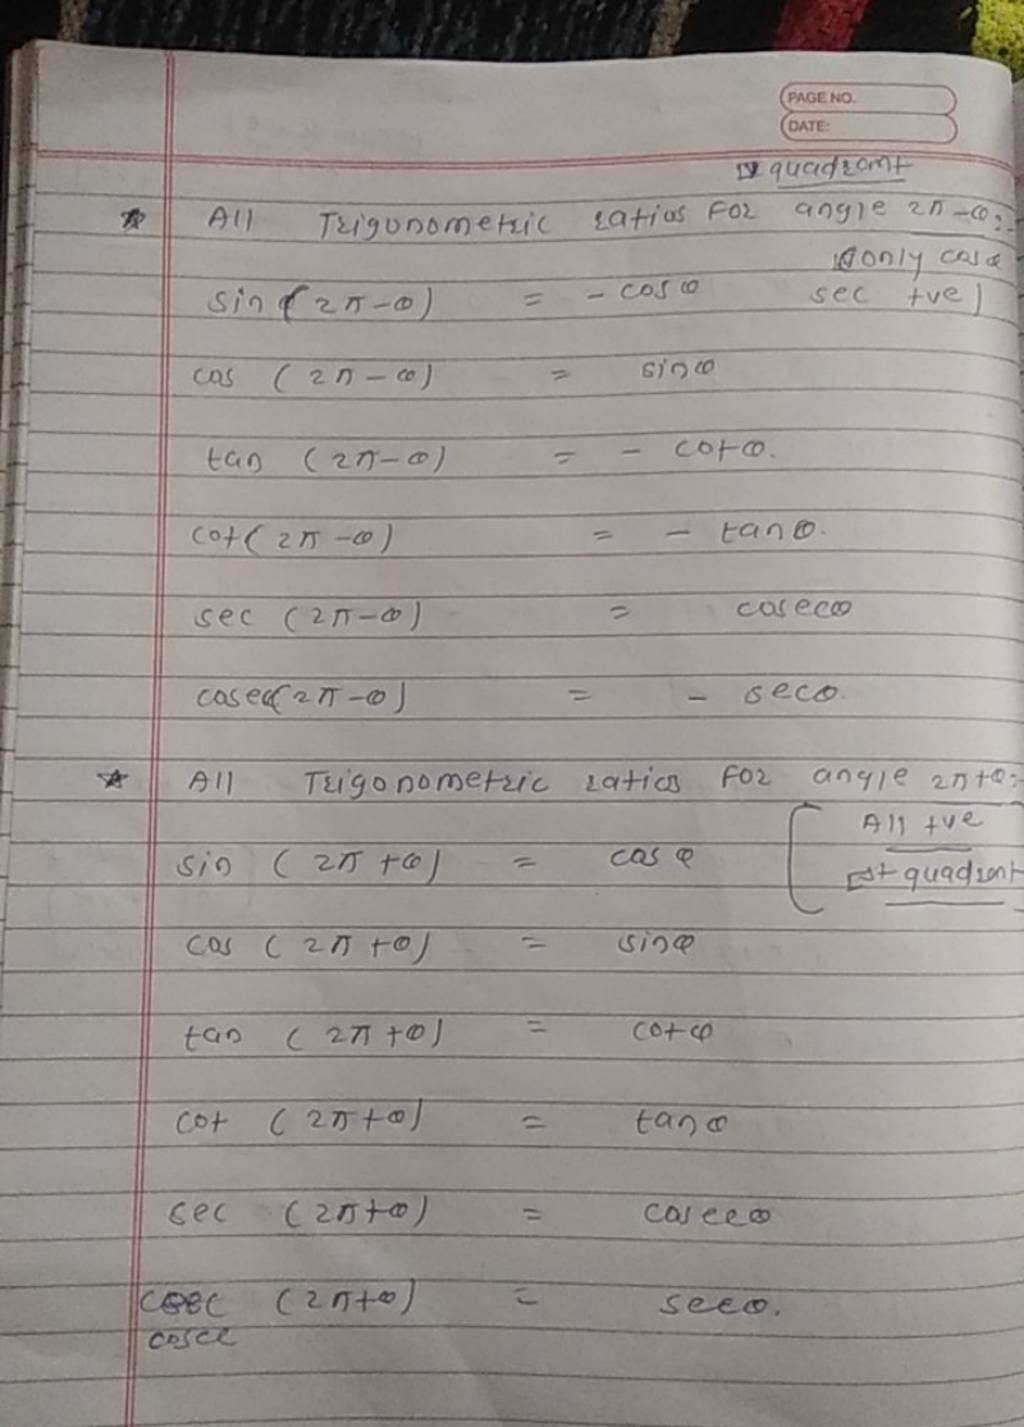 PAGE NO.
DATE:
IV quadrant
* All Trigonometric ratios For angle 2π-θ:-
(only cos &
sin (2π-θ) = - cosθ sec +ve)
cos (2π-θ) = sinθ
tan (2π-θ) = - cotθ.
cot(2π-θ) = - tanθ.
sec (2π-θ) = cosecθ
cosec(2π-θ) = - secθ.
* All Trigonometric ratios For angle 2π+θ:-
[ All +ve
sin (2π+θ) = cosθ Ist quadrant
cos (2π+θ) = sinθ
tan (2π+θ) = cotθ
cot (2π+θ) = tanθ
sec (2π+θ) = cosecθ
(2π+θ) = secθ.